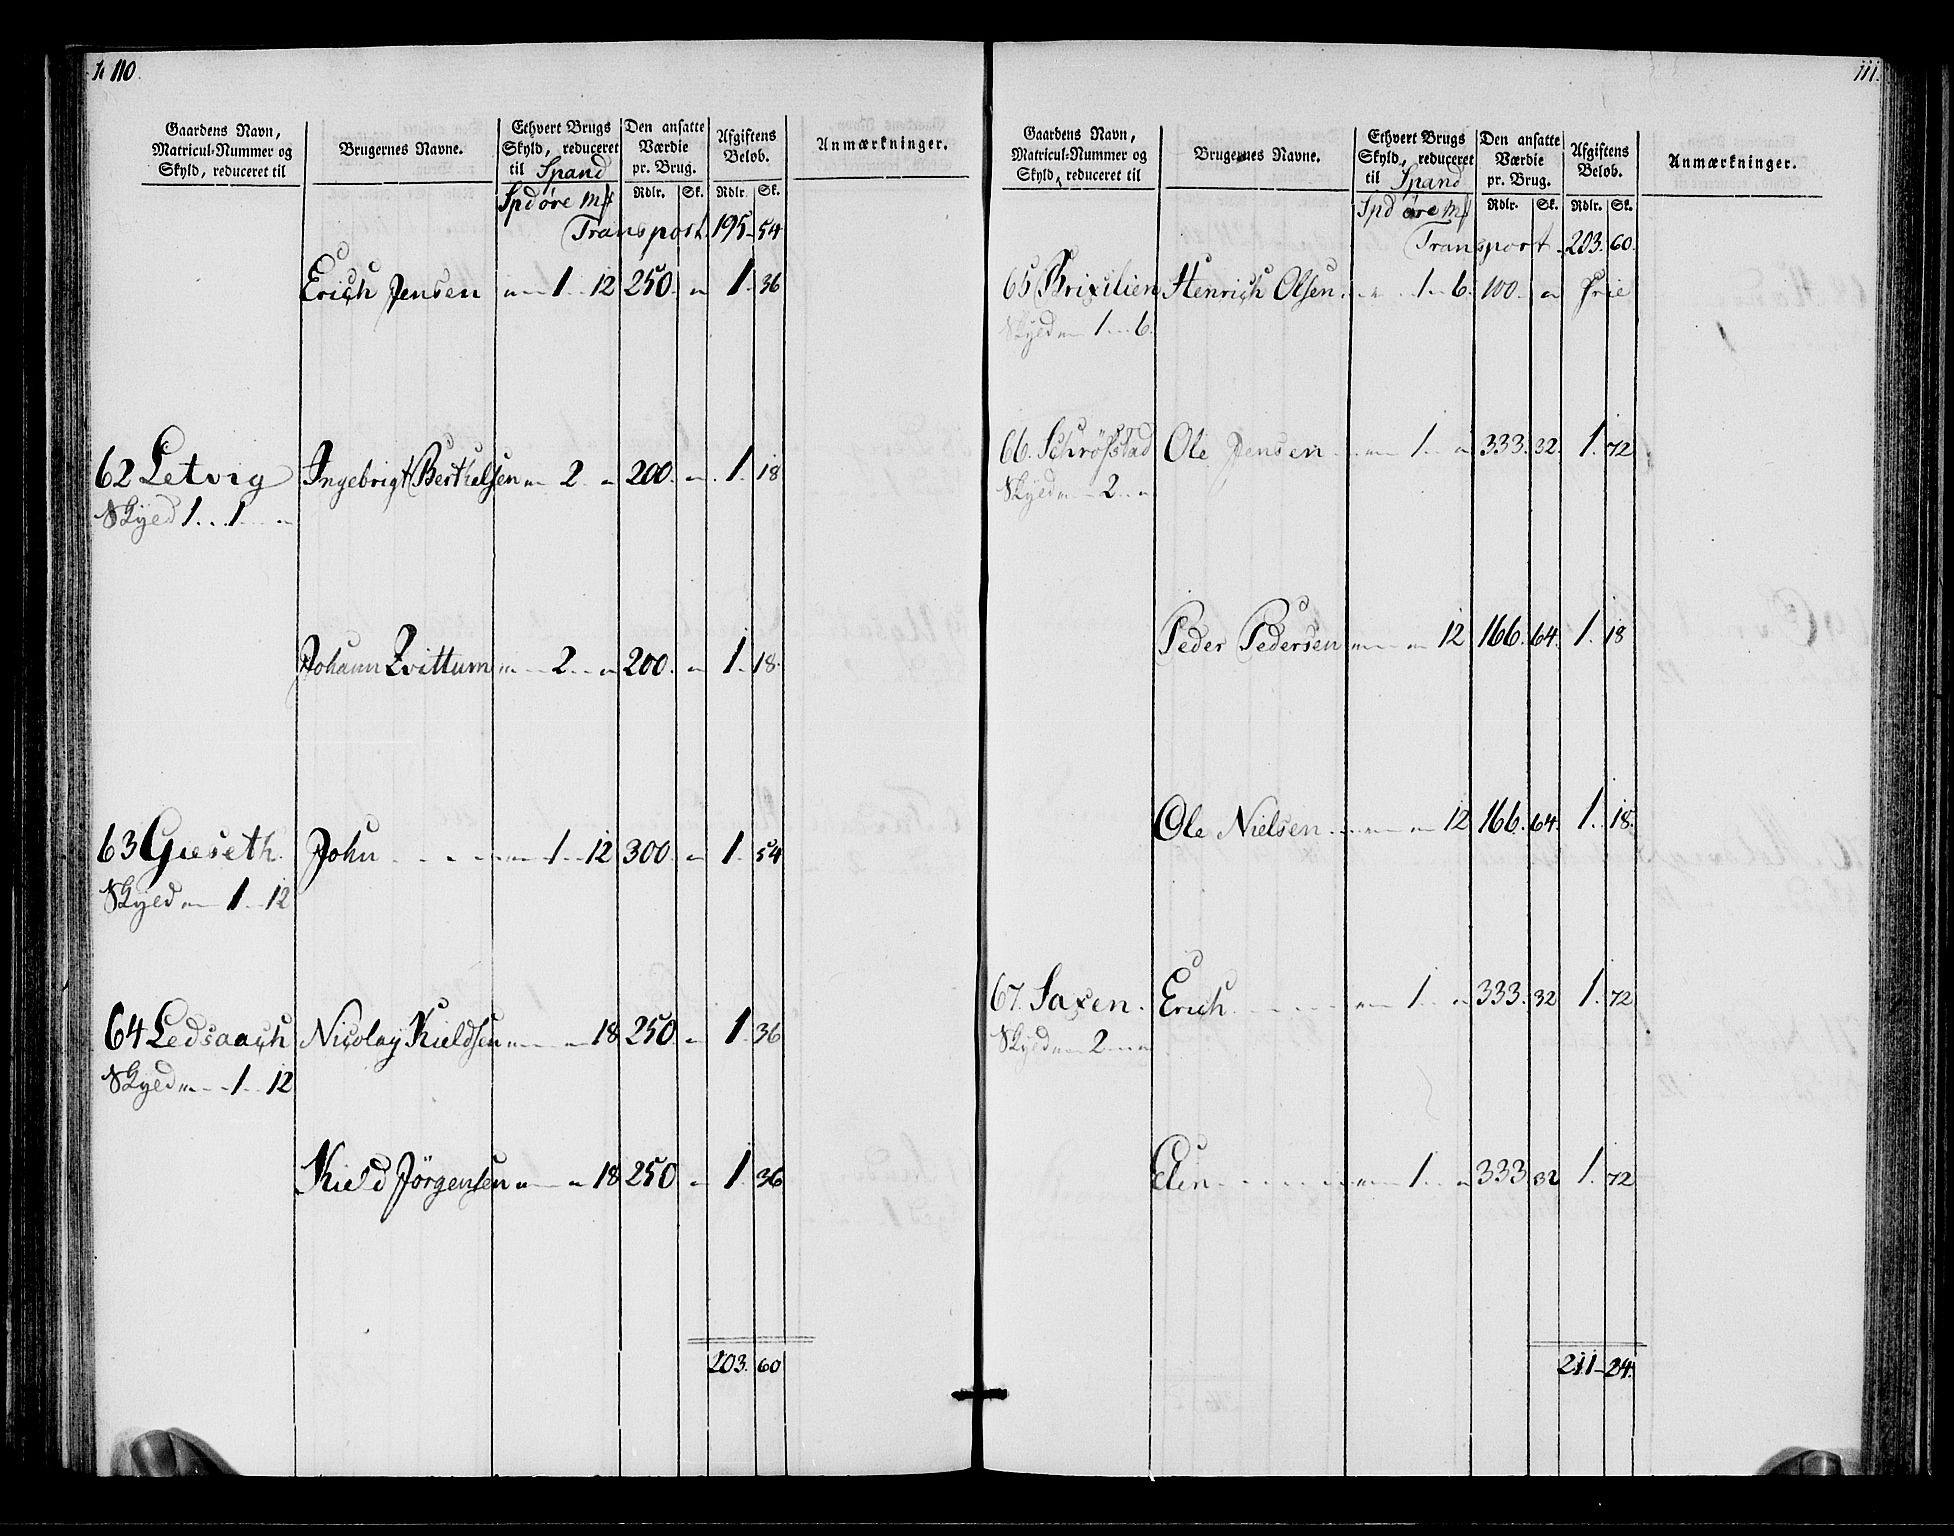 110.
Gaardens Navn, Matricul-Nummer og Skyld, reduceret til
Brugernes Navne.
Ethvert Brugs Skyld, reduceret til Spand
Den ansatte Værdie pr. Brug.
Afgiftens Beløb.
Anmærkninger.
Spd öre Mf Rdlr. Sk. Rdlr. Sk.
Transport 195 54
Erich Jensen 1 12 250 1 36
62 Letvig Ingebrigt Berthelsen 2 200 1 18
Skyld 1 1
Johann Zvittum 2 200 1 18
63 Gieseth John 1 12 300 1 54
Skyld 1 12
64 Ledsaach Nicolay Kieldsen 18 250 1 36
Skyld 1 12
Kield Jörgensen 18 250 1 36
203 60
111.
Gaardens Navn, Matricul-Nummer og Skyld, reduceret til
Brugernes Navne.
Ethvert Brugs Skyld, reduceret til Spand
Den ansatte Værdie pr. Brug.
Afgiftens Beløb.
Anmærkninger.
Spd öre Mf Rdlr. Sk. Rdlr. Sk.
Transport 203 60
65 Brixilien Henrich Olsen 1 6 100 frie
Skyld 1 6
66. Schröfstad Ole Jensen 1 333 32 1 72
Skyld 2
Peder Pedersen 12 166 64 1 18
Ole Nielsen 12 166 64 1 18
67. Saxen Erich 1 333 32 1 72
Skyld 2
Elen 1 333 32 1 72
211 24